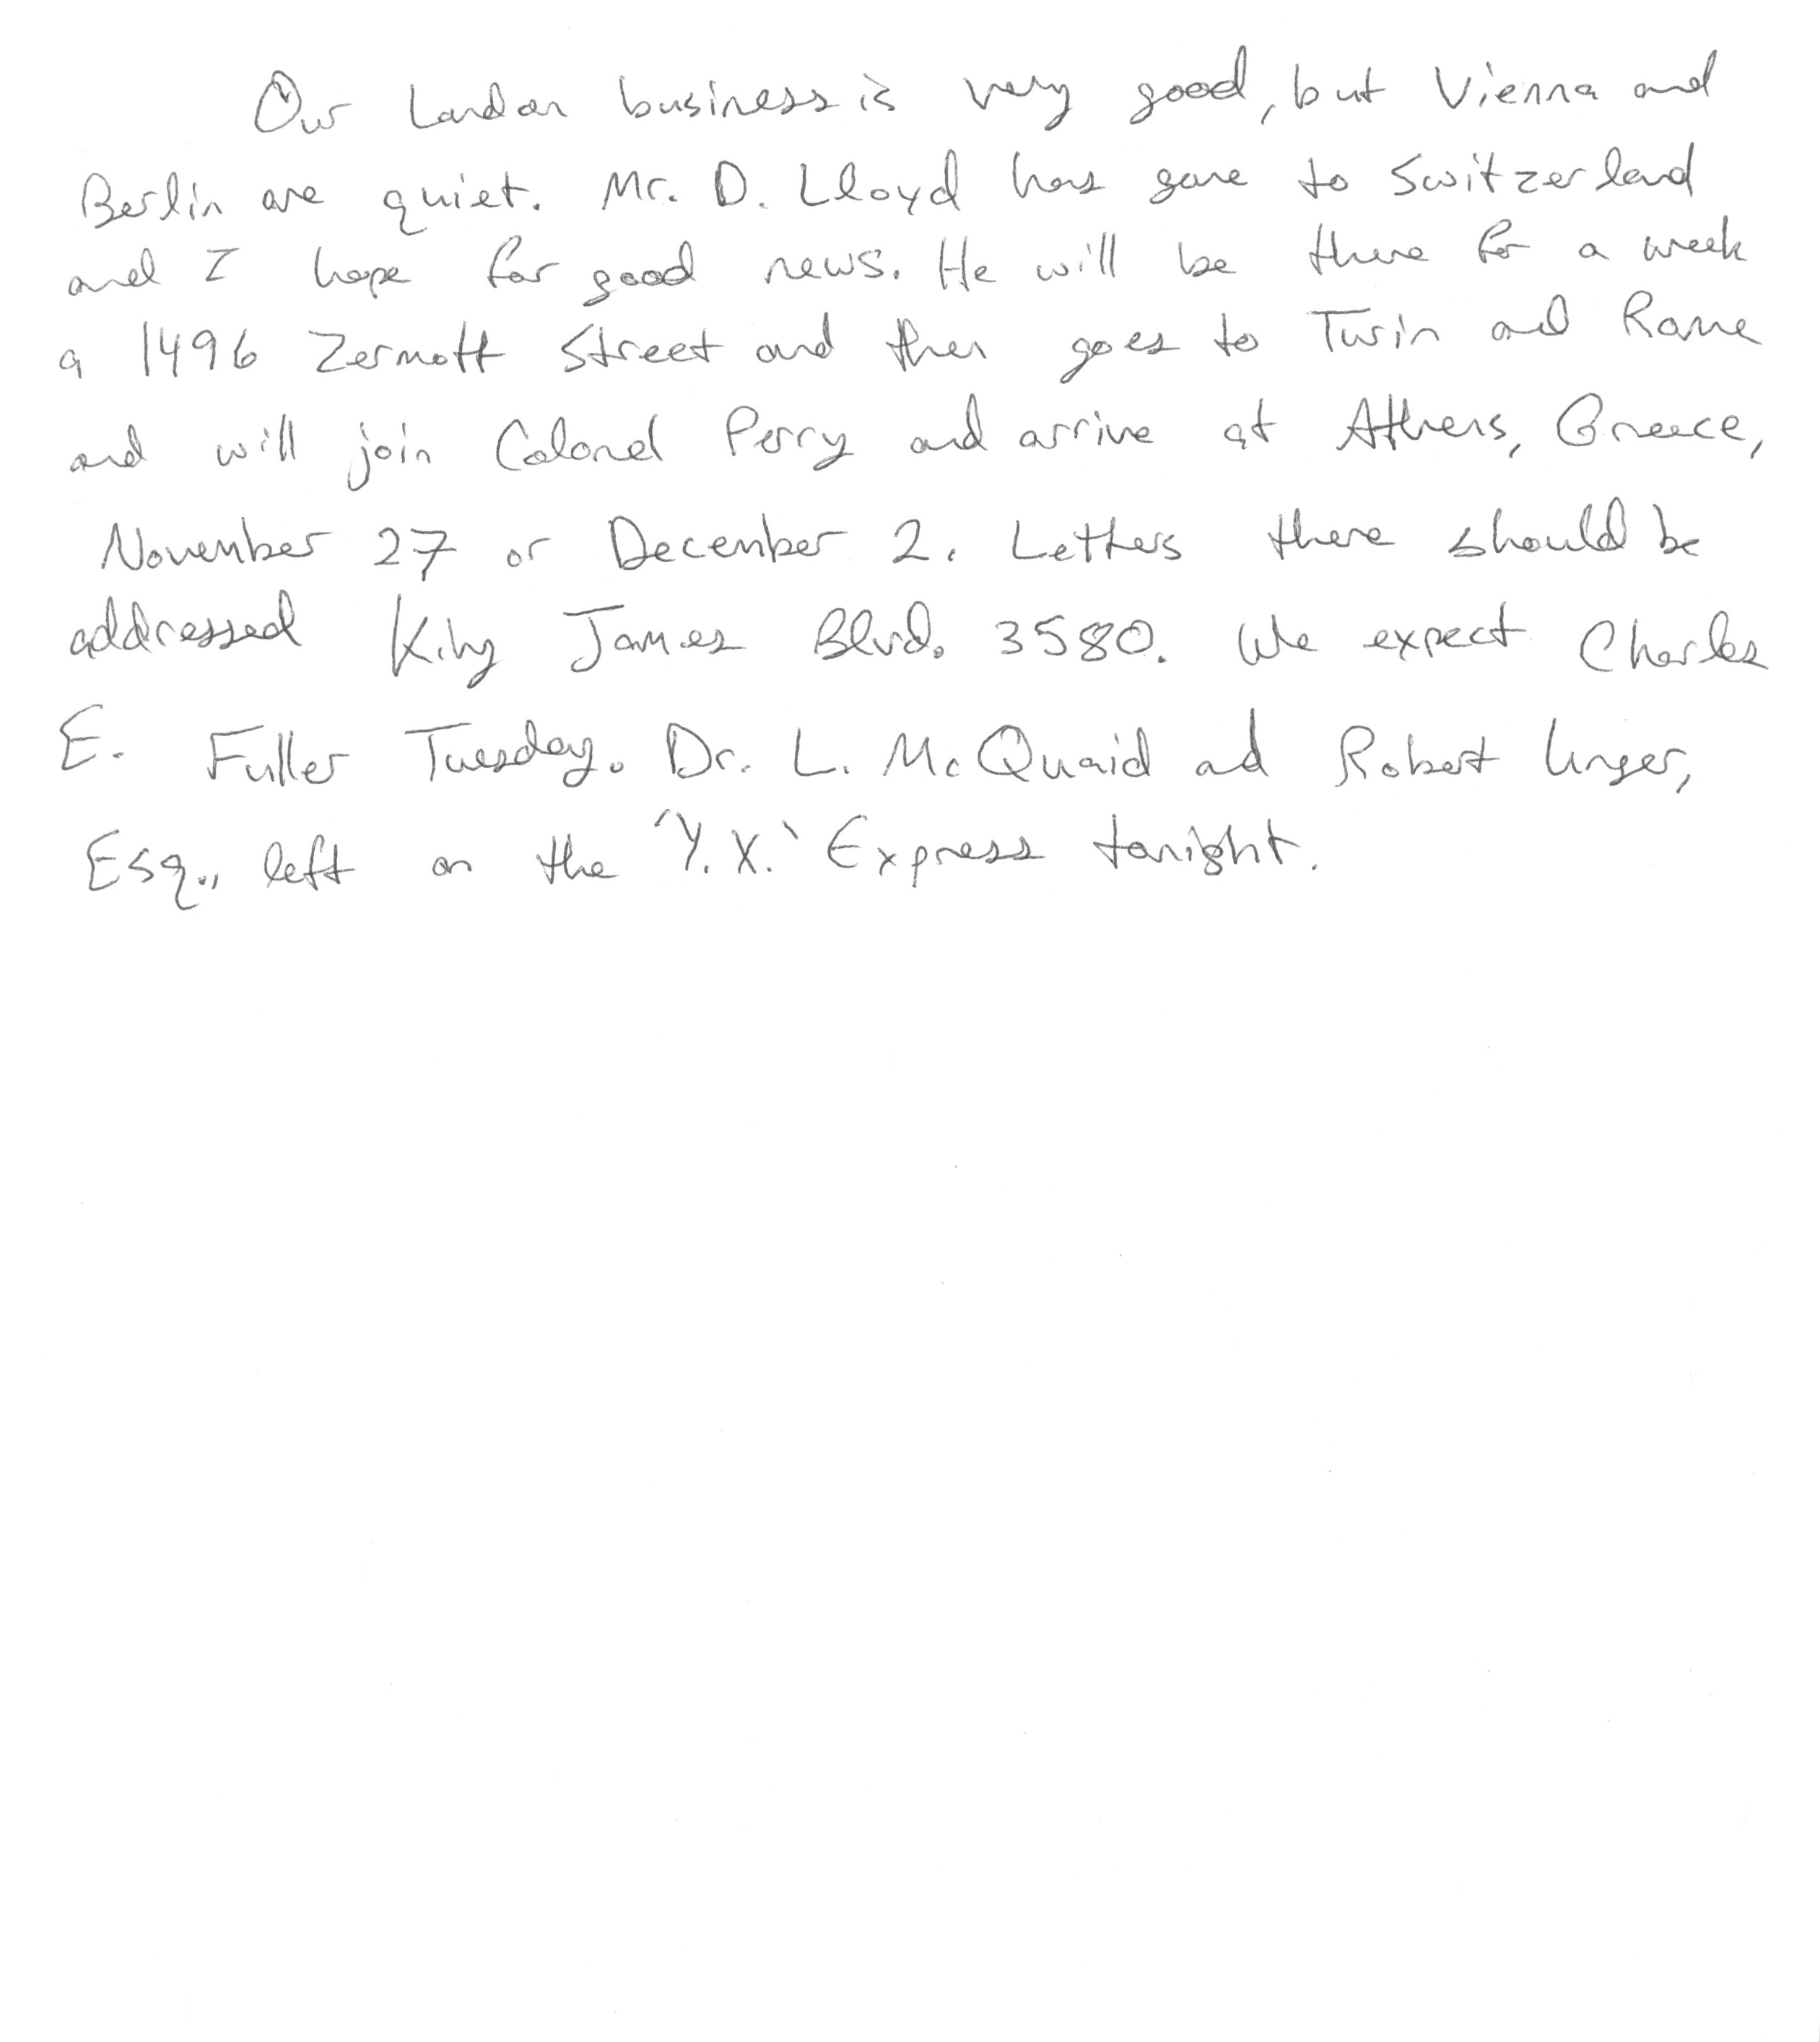 Our London business is very good, but Vienna and
Berlin are quiet. Mr. D. Lloyd has gone to Switzerland
and I hope for good news. He will be there for a week
a 1496 Zermott Street and then goes to Turin and Rome
and will join Colonel Perry and arrive at Athens, Greece,
November 27 or December 2. Letters there should be
addressed King James Blvd. 3580. We expect Charles
E. Fuller Tuesday. Dr. L. McQuaid and Robert Unger,
Esq., left on the 'Y.X.' Express tonight.